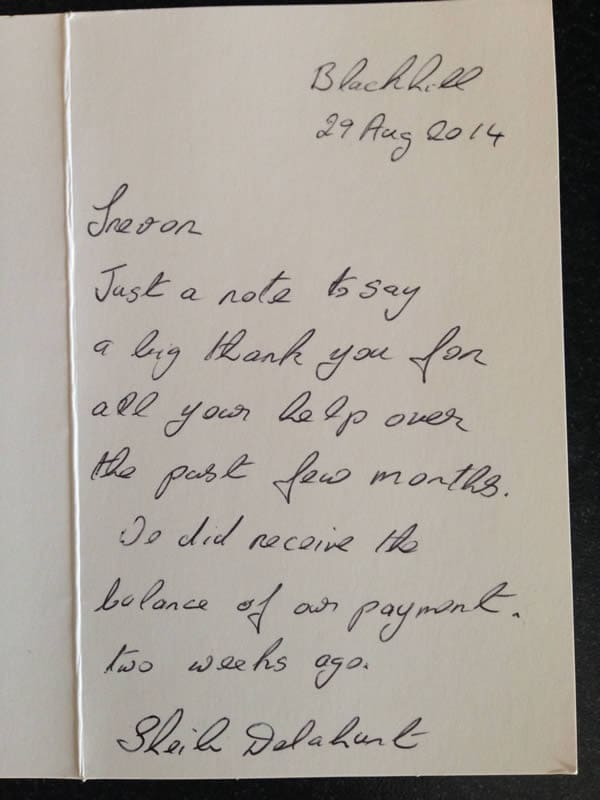 Blackhill
29 Aug 2014
Trevor
Just a note to say
a big thank you for
all your help over
the past few months.
We did receive the
balance of our payment.
two weeks ago.
Sheila Delahunt